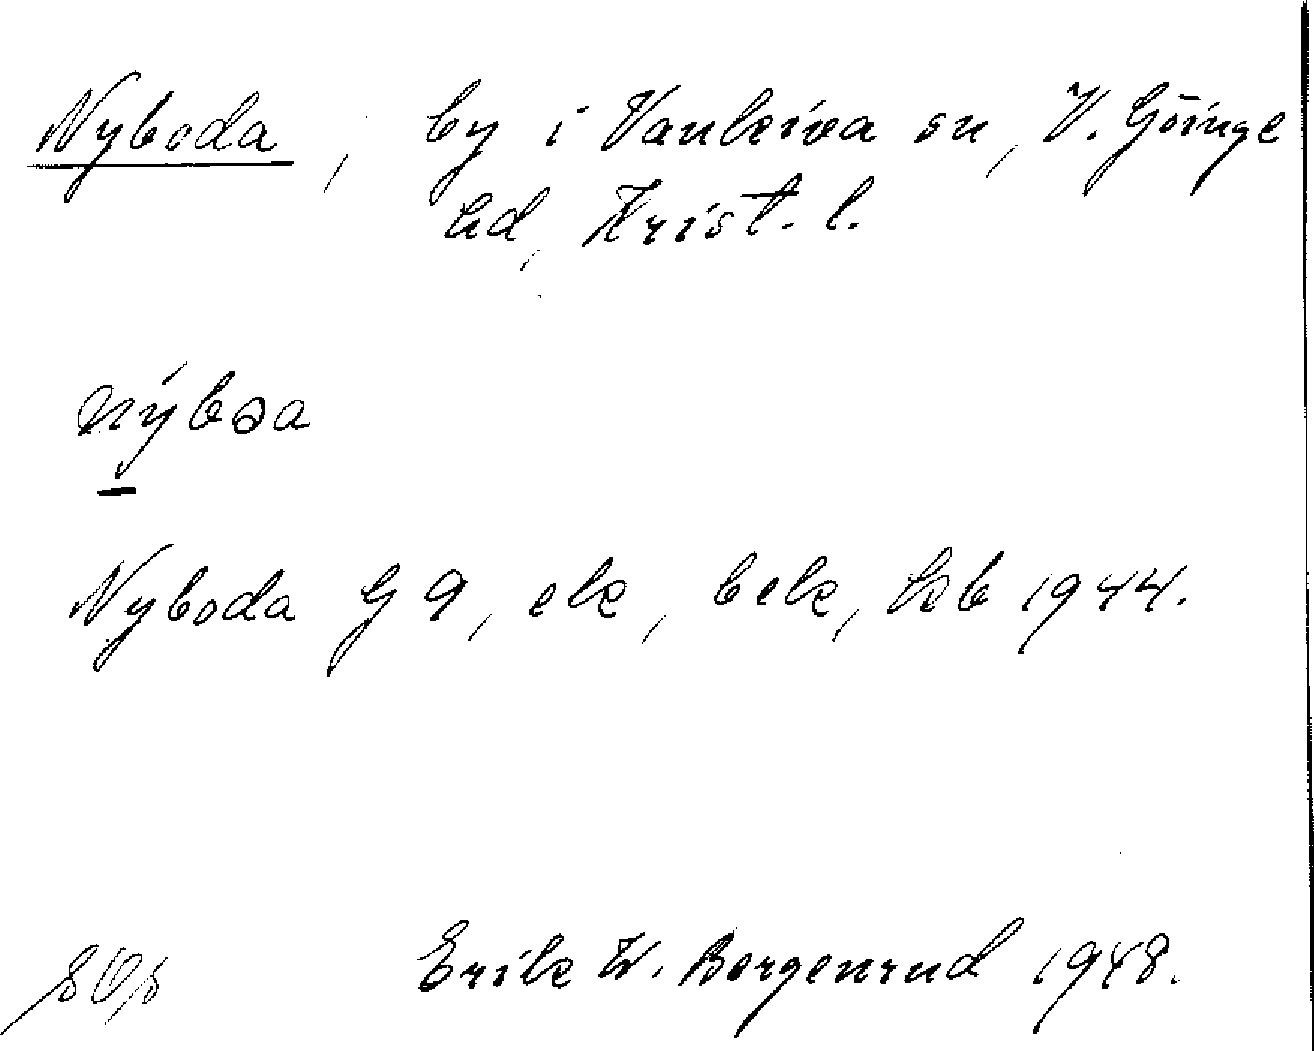 Nyboda, by i Vankiva sn, V. Göinge
hd, Krist. l.
nýbəa
Nyboda G 9, ek, bek, hb 1944.
Erik W. Borgenrud 1948.